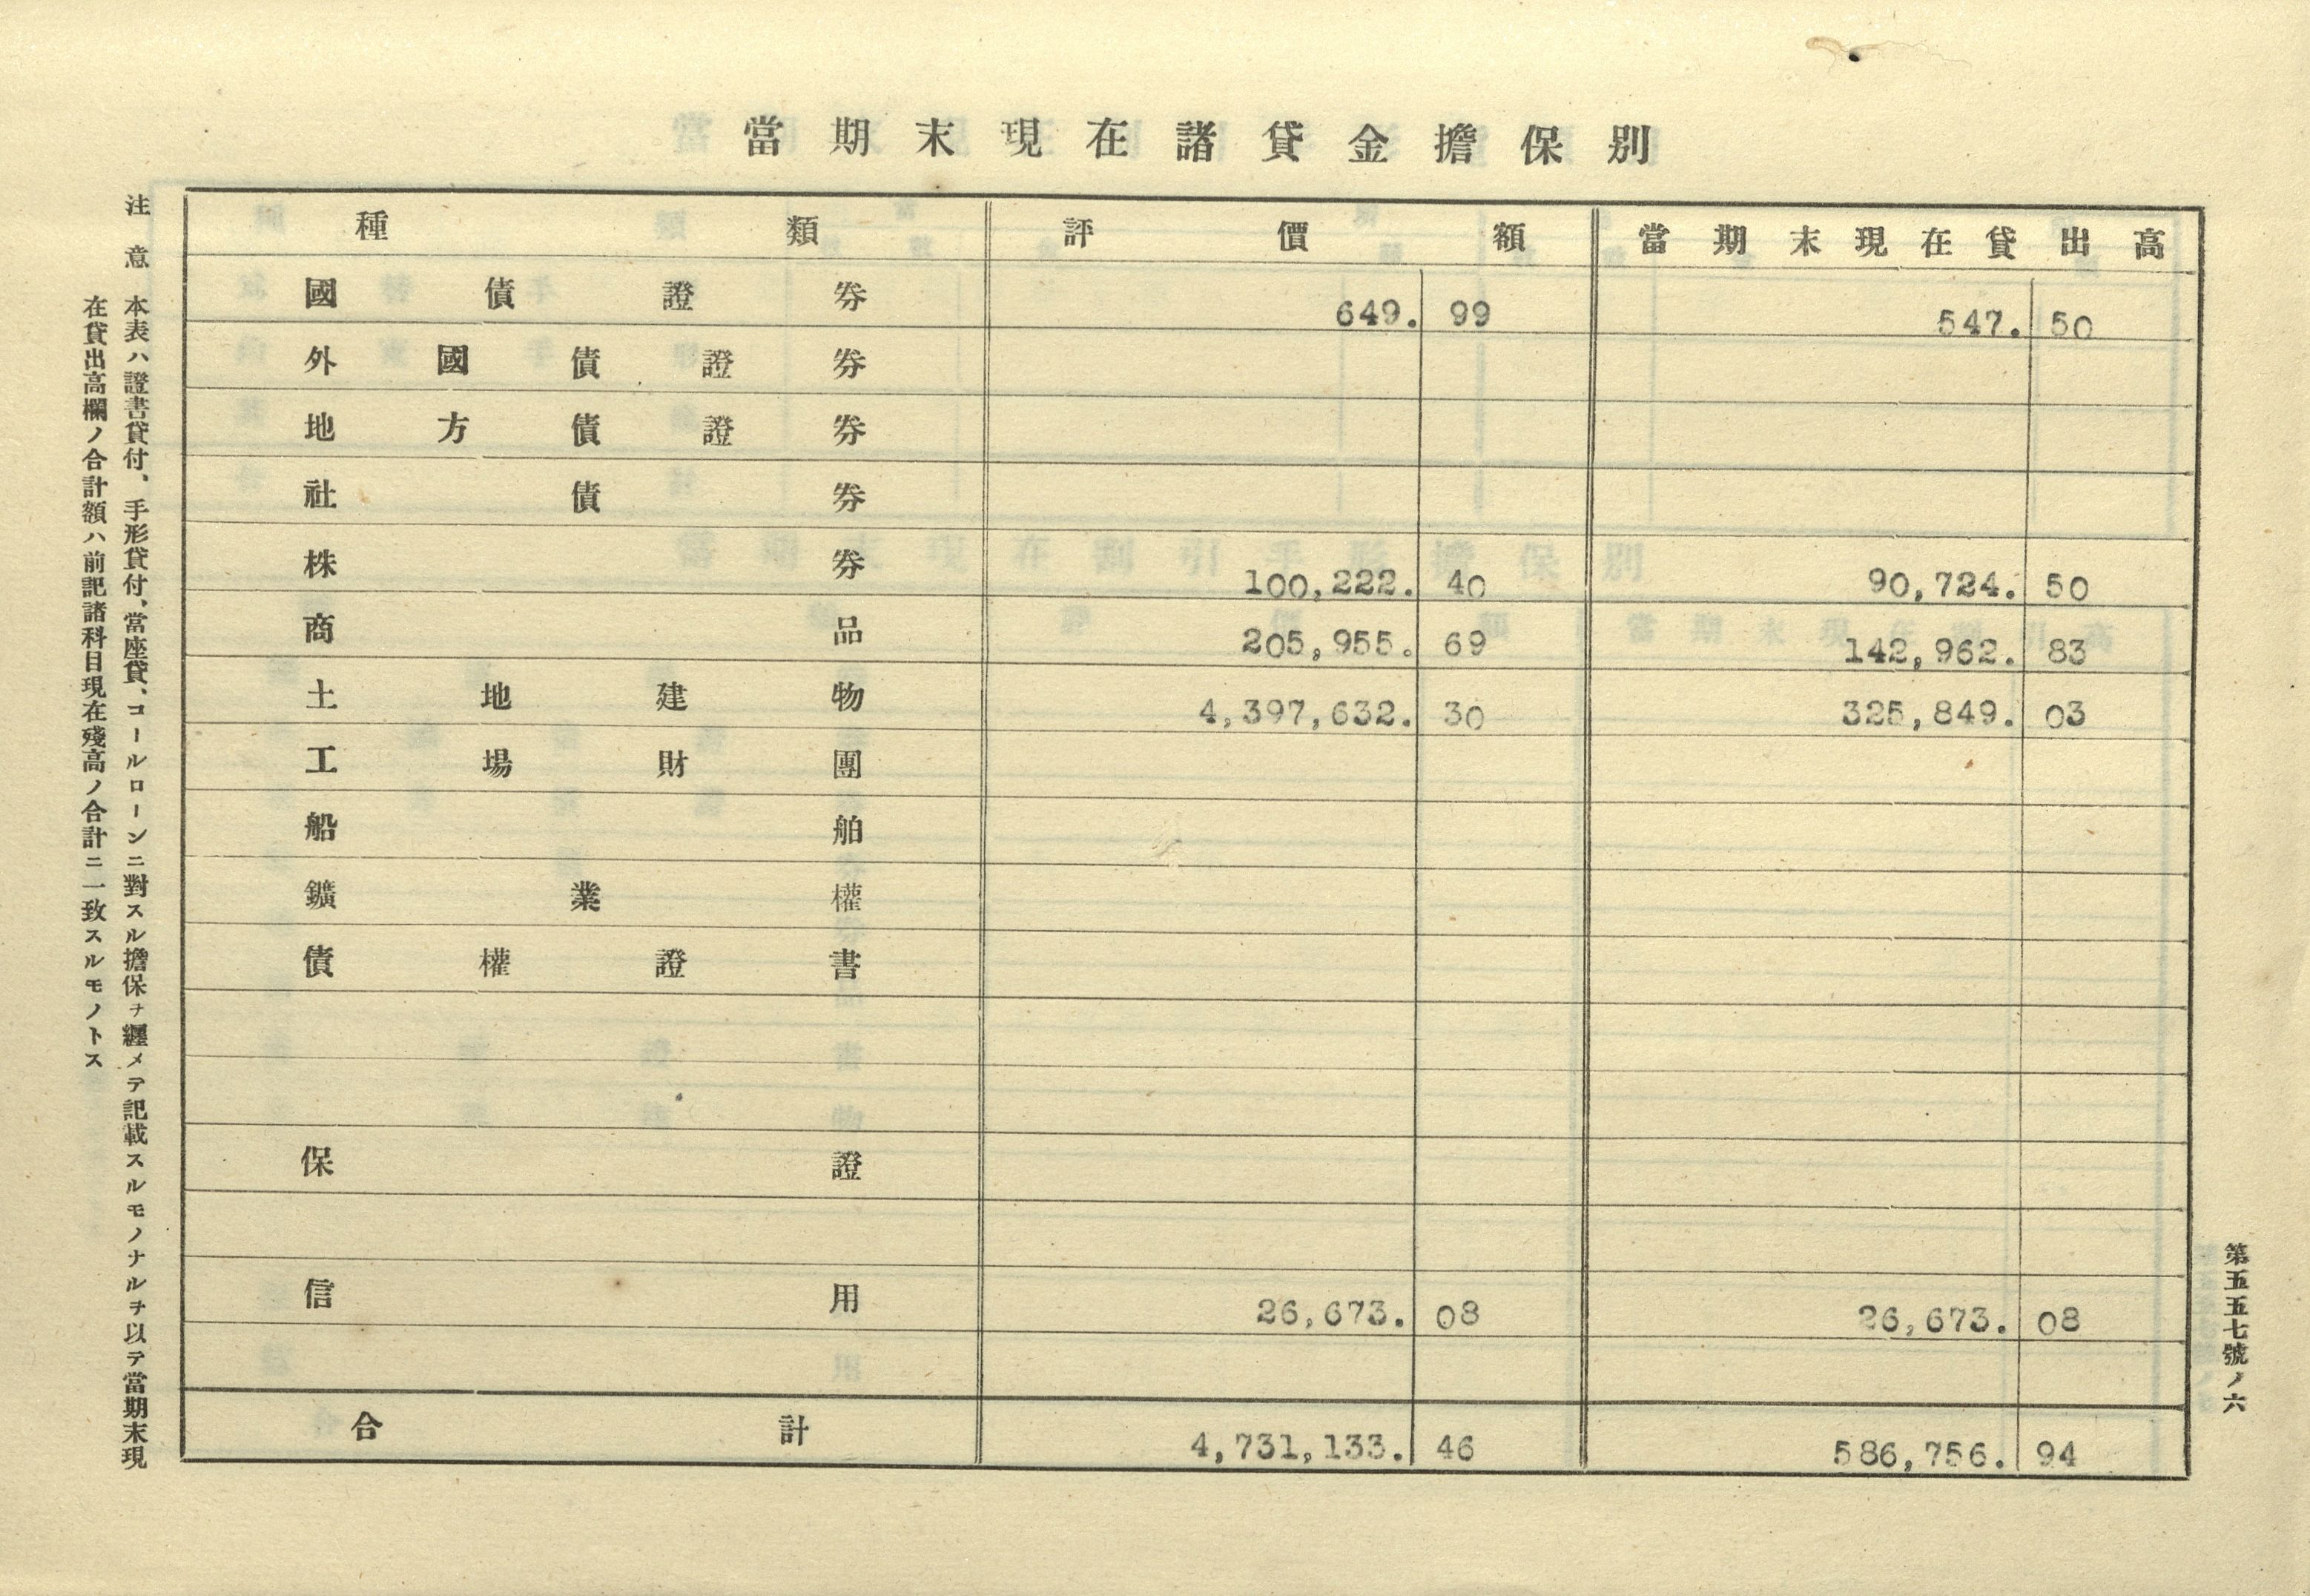 當期末現在諸貸金擔保別
種類 評價額 當期末現在貸出高
國債證券 649.99 547.50
外國債證券
地方債證券
社債券
株券 100,222.40 90,724.50
商品 205,955.69 142,962.83
土地建物 4,397,632.30 325,849.03
工場財團
船舶
鑛業權
債權證書
保證
信用 26,673.08 26,673.08
合計 4,731,133.46 586,756.94
注意 本表ハ證書貸付、手形貸付、當座貸、コールローンニ對スル擔保ヲ纒メテ記載スルモノナルヲ以テ當期末現
在貸出高欄ノ合計額ハ前記諸科目現在殘高ノ合計ニ一致スルモノトス
第五五七號ノ六